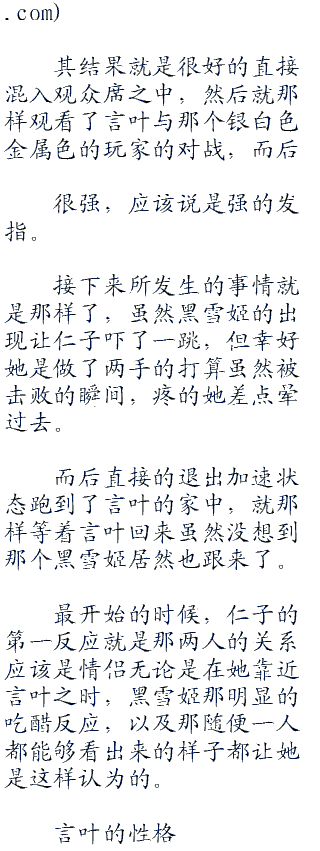 .com)
其结果就是很好的直接
混入观众席之中，然后就那
样观看了言叶与那个银白色
金属色的玩家的对战，而后
很强，应该说是强的发
指。
接下来所发生的事情就
是那样了，虽然黑雪姬的出
现让仁子吓了一跳，但幸好
她是做了两手的打算虽然被
击败的瞬间，疼的她差点晕
过去。
而后直接的退出加速状
态跑到了言叶的家中，就那
样等着言叶回来虽然没想到
那个黑雪姬居然也跟来了。
最开始的时候，仁子的
第一反应就是那两人的关系
应该是情侣无论是在她靠近
言叶之时，黑雪姬那明显的
吃醋反应，以及那随便一人
都能够看出来的样子都让她
是这样认为的。
言叶的性格